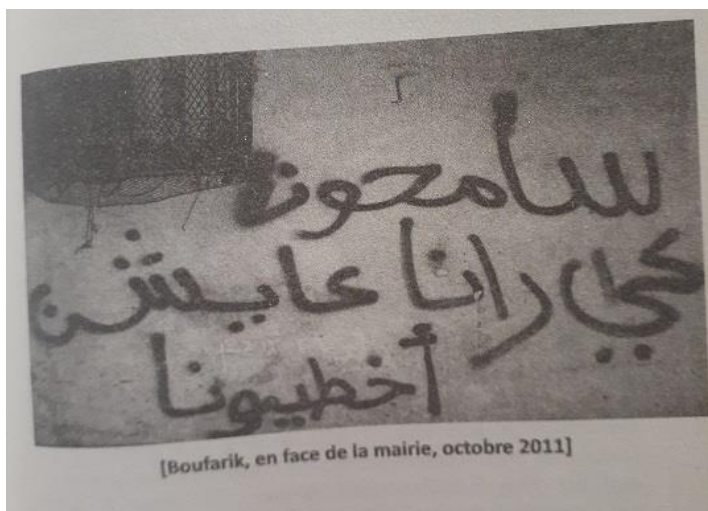 سامحونا
كي رانا عايشن
أخطيونا
[Boufarik, en face de la mairie, octobre 2011]